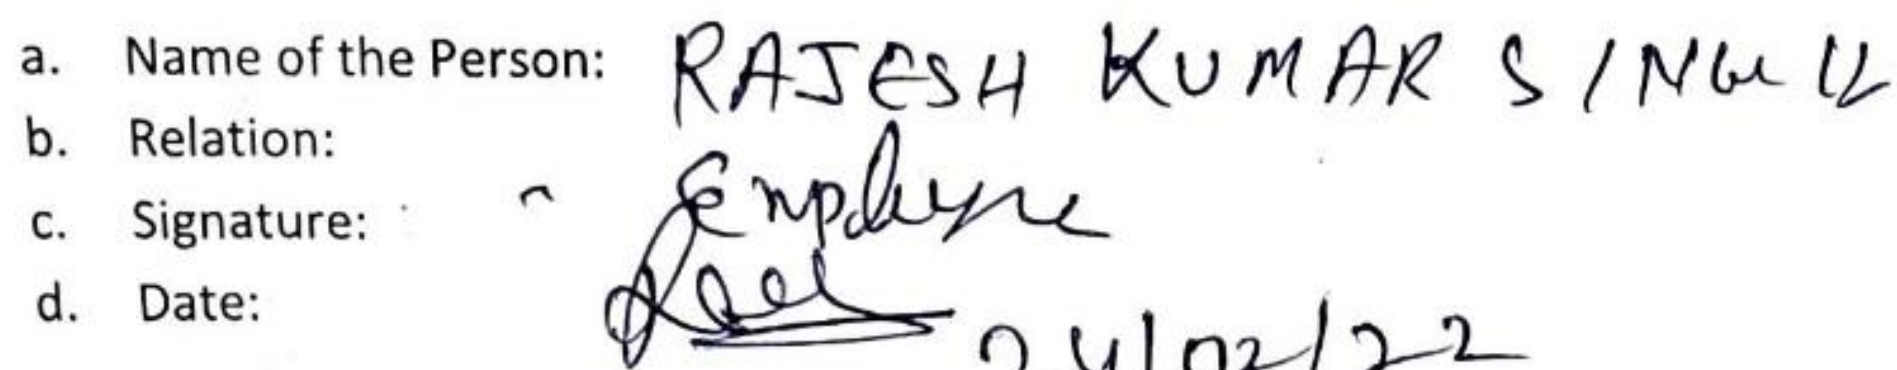 a. Name of the Person: RAJESH KUMAR SINGH
b. Relation: Employee
c. Signature:
d. Date: 24/02/22